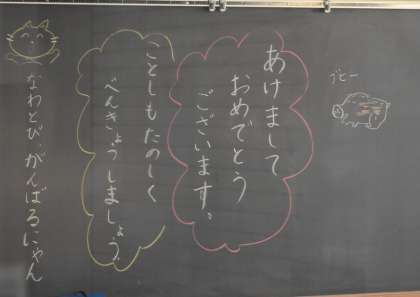 ブヒー
あけまして
おめでとう
ございます。
ことしもたのしく
べんきょうしましょう。
なわとび、がんばるにゃん